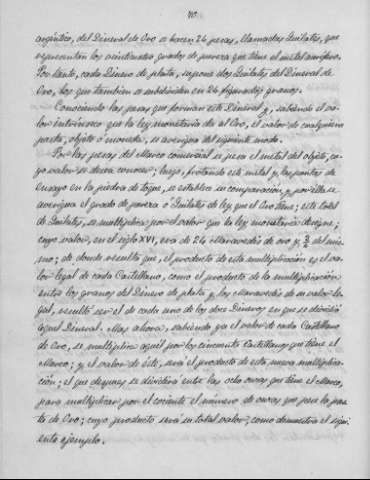 argentéo, del Dineral de Oro se hacen 24 pesas, llamadas Quilates, que
representan los veinticuatro grados de pureza que tiene el metal aurífero.
Por tanto, cada Dinero de plata, supone dos Quilates del Dineral de
Oro, los que tambien se subdividen en 24 figurados granos.
Conociendo las pesas que forman este Dineral y, sabiendo el va-
lor intrínseco que la ley monetaria da al Oro, el valor de cualquiera
pasta, objeto ó moneda, se averigua del siguiente modo.
Por las pesas del Marco comercial se pesa el metal del objeto, cu-
yo valor se desea conocer; luego, frotando este metal y las puntas de
ensayo en la piedra de toque, se establece su comparación y por ella se
averigua el grado de pureza ó Quilates de ley que el Oro tiene; este total
de Quilates, se multiplica por el valor que la ley monetaria designe;
cuyo valor, en el siglo XVI, era de 24 Maravedís de oro y del mis-
mo; de donde resulta que, el producto de esta multiplicación es el va-
lor legal de cada Castellano, como el producto de la multiplicación
entre los granos del Dinero de plata y los Maravedís de su valor le-
gal, resultó ser el de cada uno de los doce Dineros en que se dividía
aquel Dineral. Mas ahora, sabiendo ya el valor de cada Castellano
de Oro, se multiplica aquel por los cincuenta Castellanos que tiene el
Marco; y el valor de éste, será el producto de esta nueva multiplica-
ción; el que despues se dividirá entre las ocho onzas que tiene el Marco,
para multiplicar por el cociente el número de onzas que pese la pas-
ta de Oro; cuyo producto será su total valor; como demuestra el sigui-
ente ejemplo.